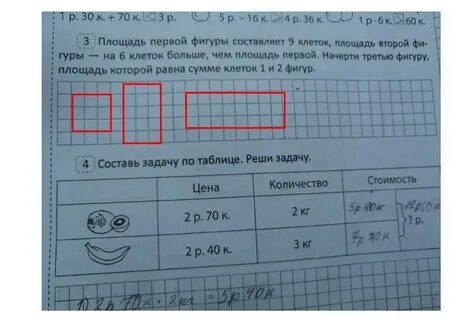 1 р. 30 к. + 70 к. 3 р. 5 р. – 16 к. 4 р. 36 к. 1 р · 6 к. 60 к.
3 Площадь первой фигуры составляет 9 клеток, площадь второй фи-
гуры — на 6 клеток больше, чем площадь первой. Начерти третью фигуру,
площадь которой равна сумме клеток 1 и 2 фигур.
4 Составь задачу по таблице. Реши задачу.
Цена Количество Стоимость
2 р. 70 к. 2 кг 5р 40к
? р.
2 р. 40 к. 3 кг 7р 20к
1) 2р 70к · 2кг = 5р 40к